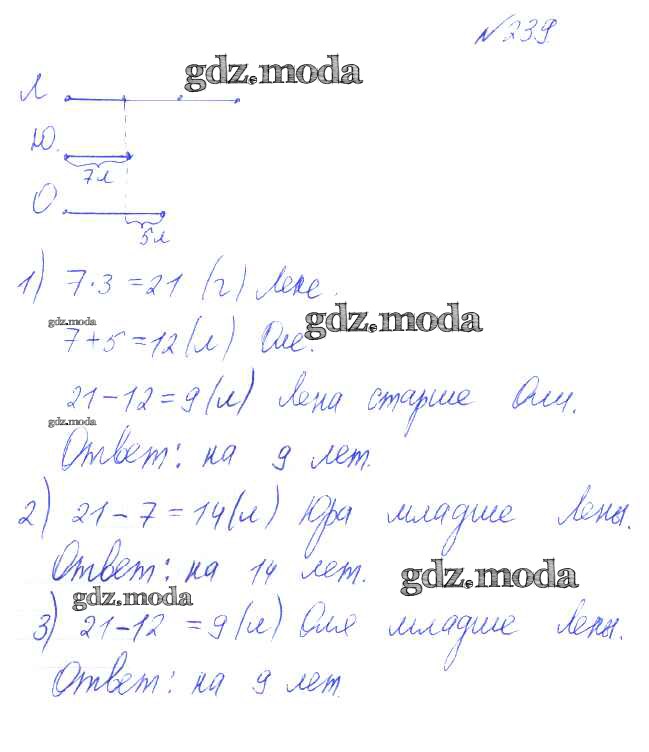 №239.
gdz.moda
Л
Ю.
7л
О
5л
1) 7·3=21 (г) Лене.
gdz.moda
gdz.moda
7+5=12(л) Оле.
21-12=9(л) Лена старше Оли.
gdz.moda
Ответ: на 9 лет.
2) 21-7=14(л) Юра младше Лены.
Ответ: на 14 лет.
gdz.moda
gdz.moda
3) 21-12=9(л) Оля младше Лены.
Ответ: на 9 лет.